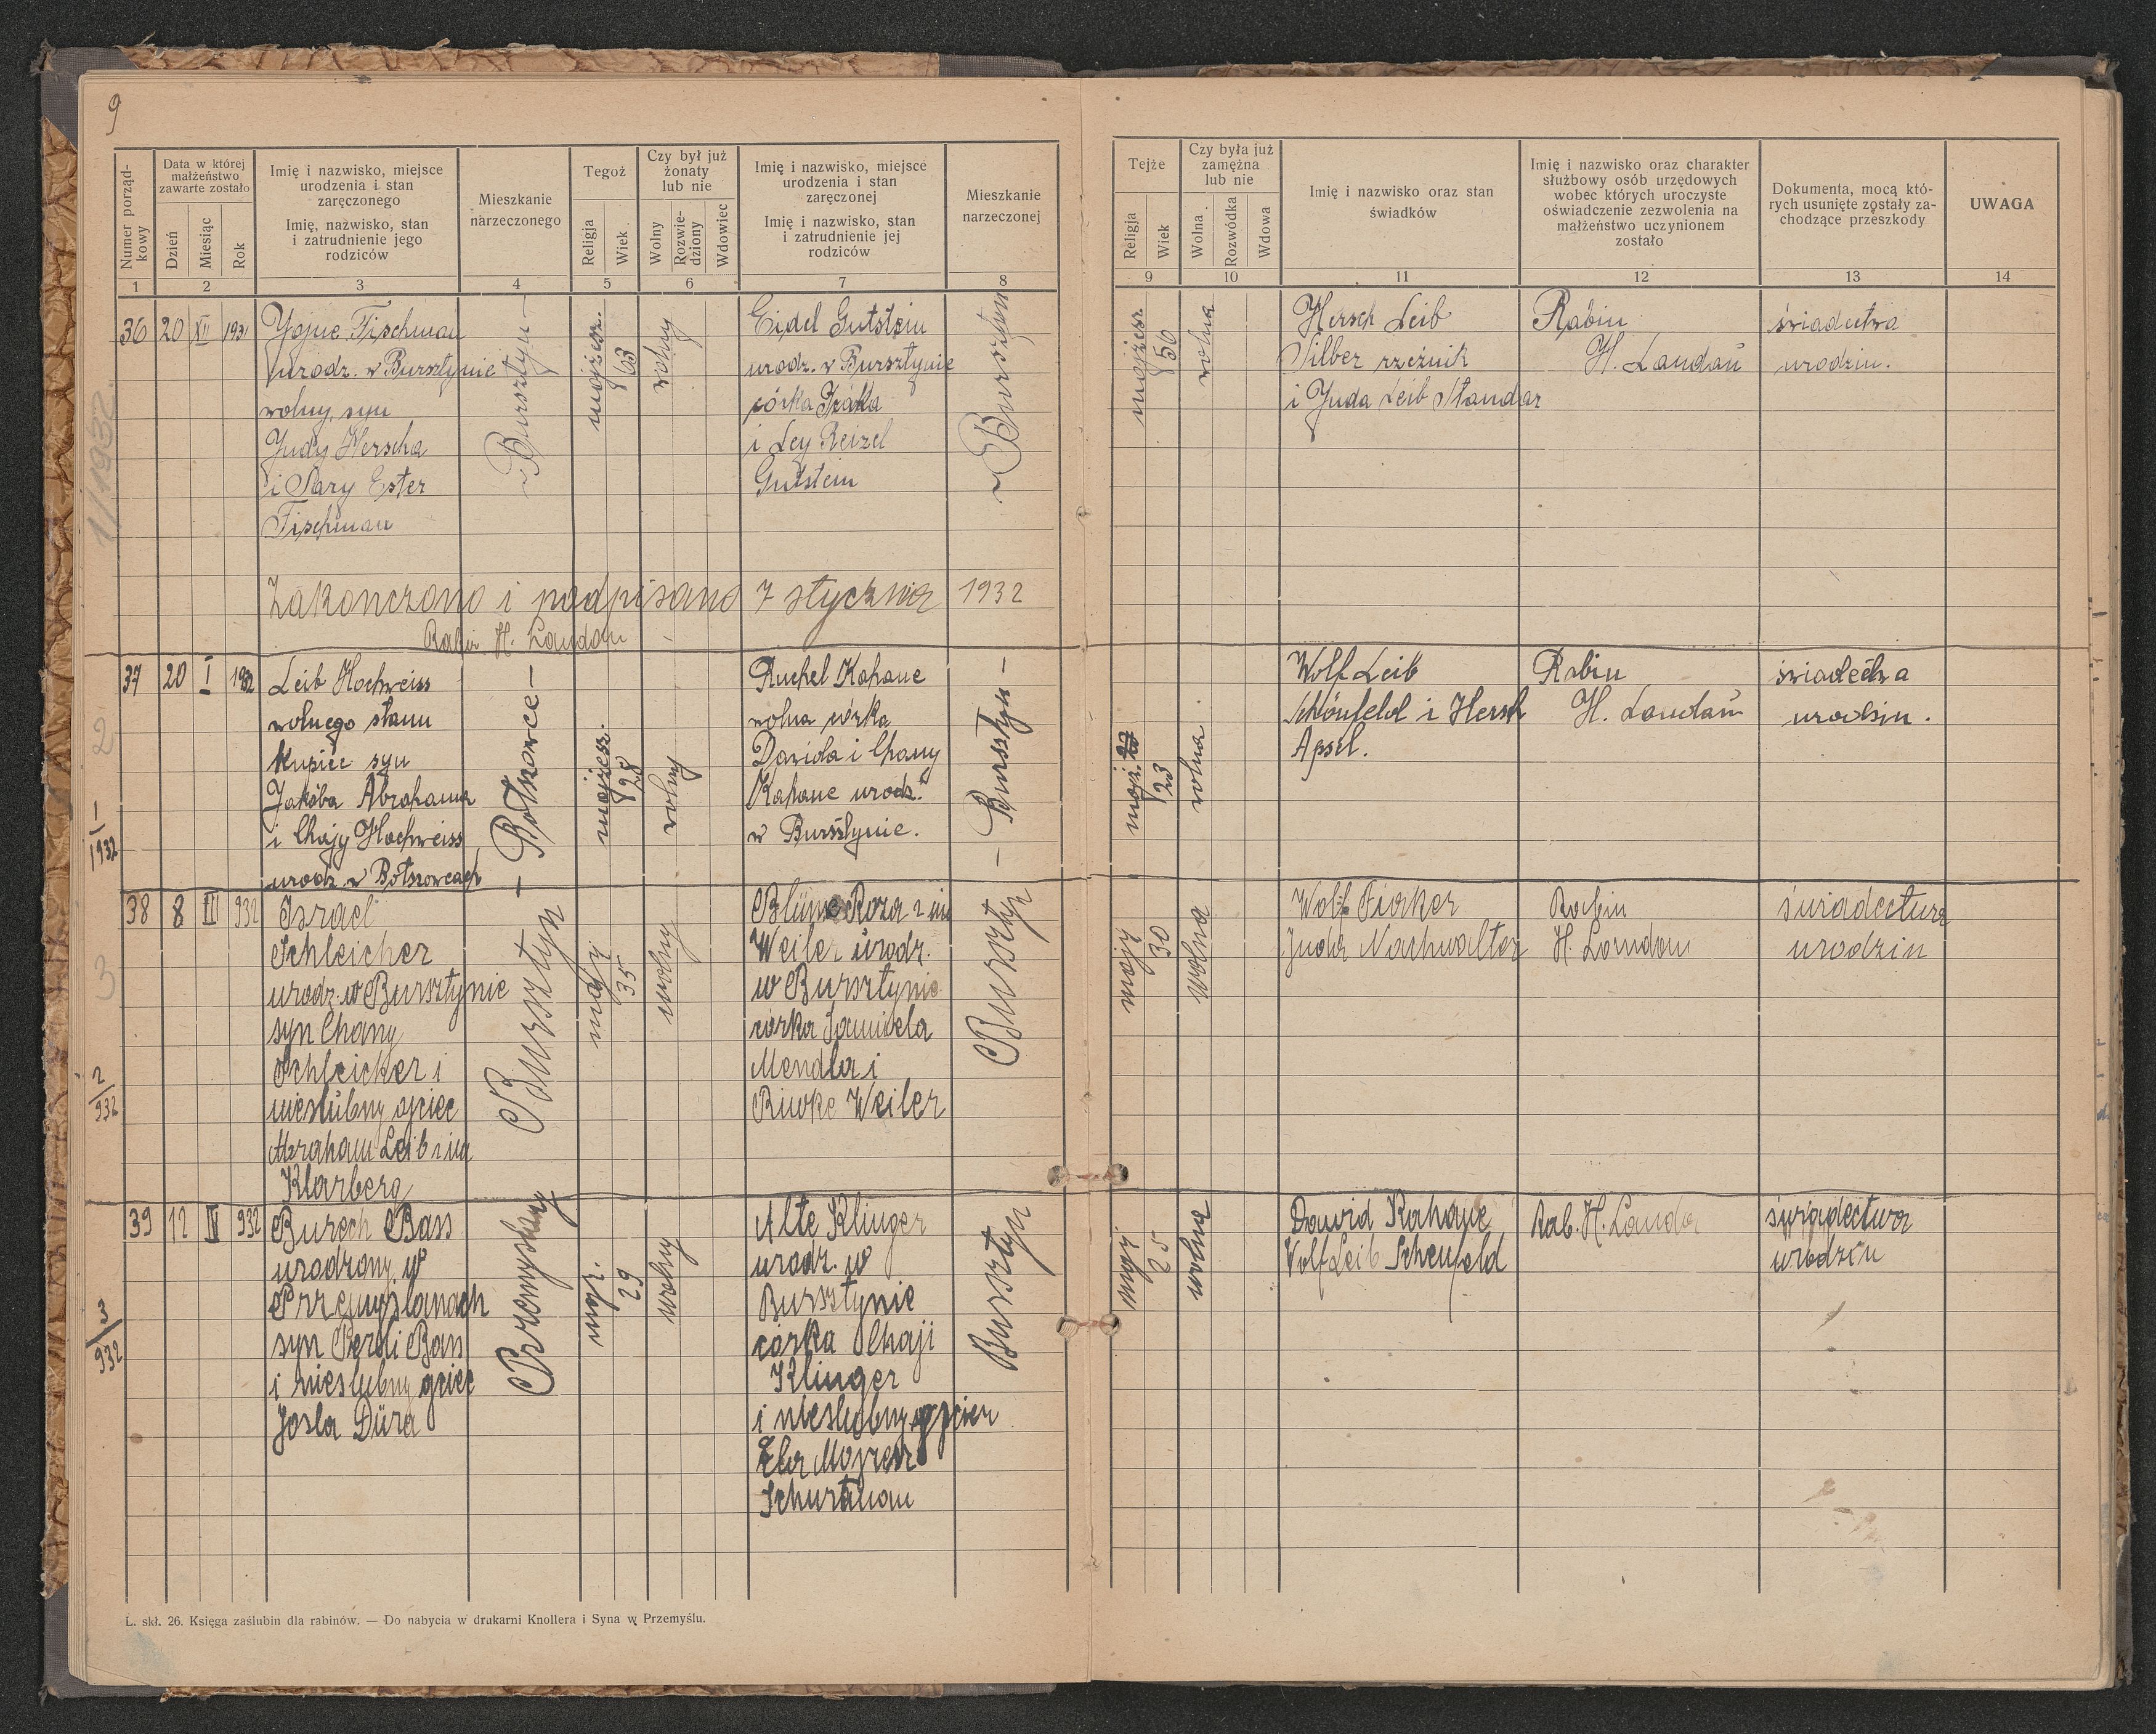 9
Numer porząd-
kowy
Data w której
małżeństwo
zawarte zostało
Dzień
Miesiąc
Rok
Imię i nazwisko, miejsce
urodzenia i stan
zaręczonego
Imię, nazwisko, stan
i zatrudnienie jego
rodziców
Mieszkanie
narzeczonego
Tegoż
Religja
Wiek
Czy był już
żonaty
lub nie
Wolny
Rozwie-
dziony
Wdowiec
Imię i nazwisko, miejsce
urodzenia i stan
zaręczonej
Imię i nazwisko, stan
i zatrudnienie jej
rodziców
Mieszkanie
narzeczonej
Tejże
Religja
Wiek
Czy była już
zamężna
lub nie
Wolna
Rozwódka
Wdowa
Imię i nazwisko oraz stan
świadków
Imię i nazwisko oraz charakter
służbowy osób urzędowych
wobec których uroczyste
oświadczenie zezwolenia na
małżeństwo uczynionem
zostało
Dokumenta, mocą któ-
rych usunięte zostały za-
chodzące przeszkody
UWAGA
1 2 3 4 5 6 7 8 9 10 11 12 13 14
36 20 XII 1931
Fischman
urodz. w Bursztynie
wolny, syn
Judy Herscha
i Sary Ester
Fischman
Bursztyn
mojżesz.
63
wolny
Eidel Gutstein
urodz. w Bursztynie
córka
i Ley Reizel
Gutstein
Bursztyn
mojżesz
56
wolna
Hersch Leib
Silber rzeźnik
i Juda Leib Standar
Rabin
H. Landau
świadectwa
urodzin.
1/1932
Zakończono i podpisano 7 stycznia 1932
Rabin H. Landau
2
1
1932
37 20 I 1932
Leib Hochweiss
wolnego stanu
kupiec syn
Jakóba Abrahama
i Chaji Hochweiss
urodz w Bołszowcach
– Bołszowce –
mojżesz.
28
wolny
Ruchel Kahane
wolna córka
Dawida i Chany
Kahane urodz.
w Bursztynie.
– Bursztyn –
mojż.
23
wolna
Wolf Leib
Schönfeld i Hersch
Apsel.
Rabin
H. Landau
świadectwa
urodzin.
3
2
932
38 8 III 932
Israel
Schleicher
urodz. w Bursztynie
syn Chany
Schleicher i
nieślubny ojciec
Abraham Leib
Klarberg
Bursztyn
mojż
35
wolny
Blüme Roza 2 im
Weiler urodz.
w Bursztynie
córka Samuela
Mendla i
Riwke Weiler
Bursztyn
mojż
30
wolna
Wolf Fiaker
Juda Nachwalter
Rabin
H. Landau
świadectwa
urodzin
3
932
39 12 IV 932
Burech Bass
urodzony w
Przemyślanach
syn Perli Bass
i nieślubny ojciec
Josla Düra
Przemyślany
mojż.
29
wolny
Alte Klinger
urodz. w
Bursztynie
córka Chaji
Klinger
i nieślubny ojciec
Mojżesz
Bursztyn
mojż
25
wolna
Dawid Kahane
Wolf Leib Schenfeld
Rab. H. Landau
świadectwa
urodzin
L. skł. 26. Księga zaślubin dla rabinów. — Do nabycia w drukarni Knollera i Syna w Przemyślu.